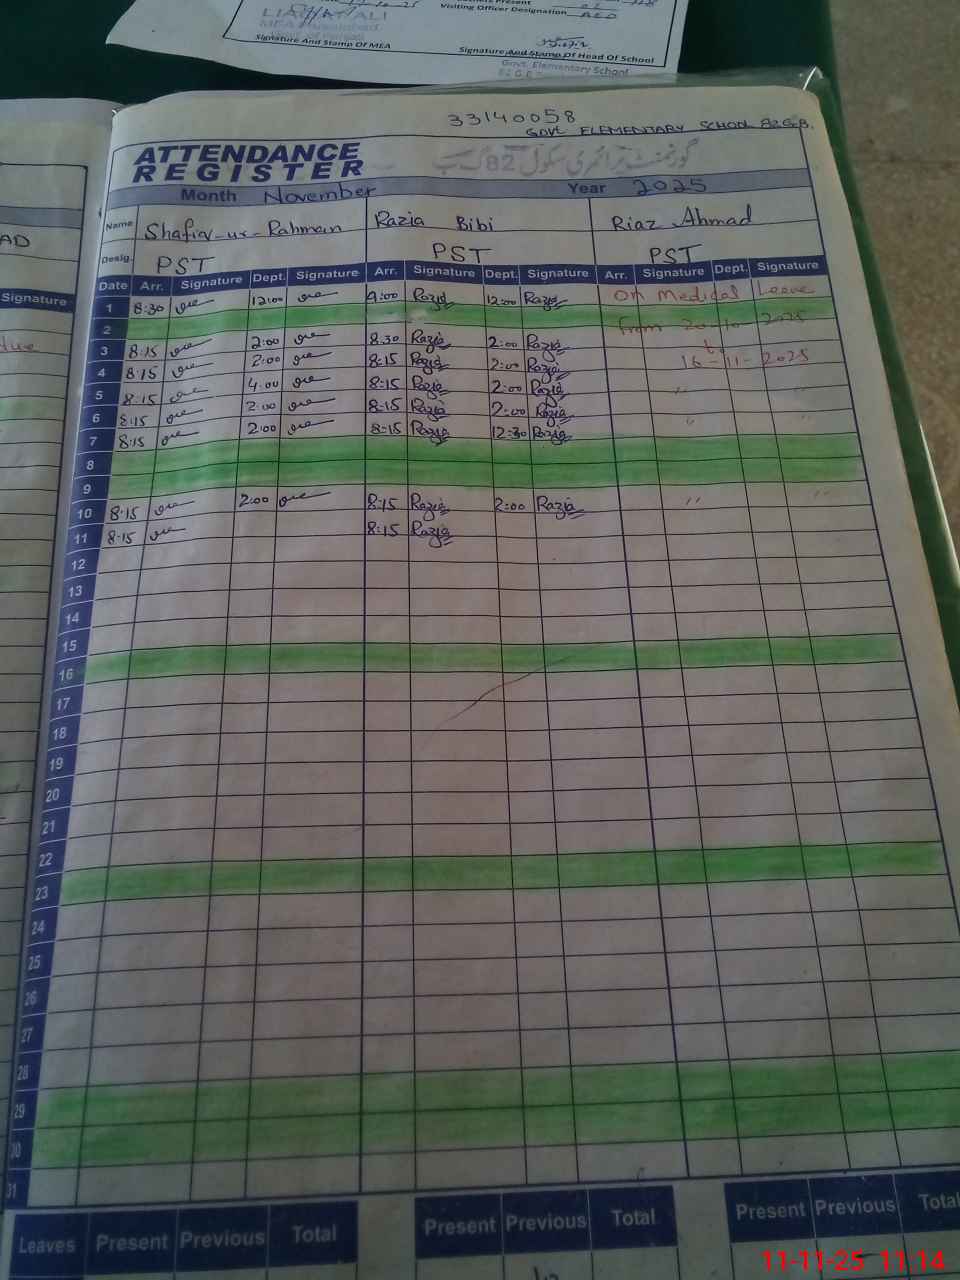 17-10-25
LIAQAT ALI
Visiting Officer Designation AEO
Signature And Stamp Of MEA
Signature And Stamp Of Head Of School
Govt. Elementary School
33140058
GOVT ELEMENTARY SCHOOL 82 G.B.
ATTENDANCE
REGISTER
گورنمنٹ پرائمری سکول 82 گ ب
Month November Year 2025
Name Shafiq-ur-Rahman Razia Bibi Riaz Ahmad
Desig. PST PST PST
Date Arr. Signature Dept. Signature Arr. Signature Dept. Signature Arr. Signature Dept. Signature
1 8:30 12:00 9:00 Razia 12:00 Razia On Medical Leave
2 From 20-10-2025
3 8:15 2:00 8:30 Razia 2:00 Razia to
4 8:15 2:00 8:15 Razia 2:00 Razia 16-11-2025
5 8:15 4:00 8:15 Razia 2:00 Razia "
6 8:15 2:00 8:15 Razia 2:00 Razia " "
7 8:15 2:00 8:15 Razia 12:30 Razia
8
9
10 8:15 2:00 8:15 Razia 2:00 Razia " "
11 8:15 8:15 Razia
12
13
14
15
16
17
18
19
20
21
22
23
24
25
26
27
28
29
30
31
Leaves Present Previous Total Present Previous Total Present Previous Total
AD
Signature
11-11-25 11:14